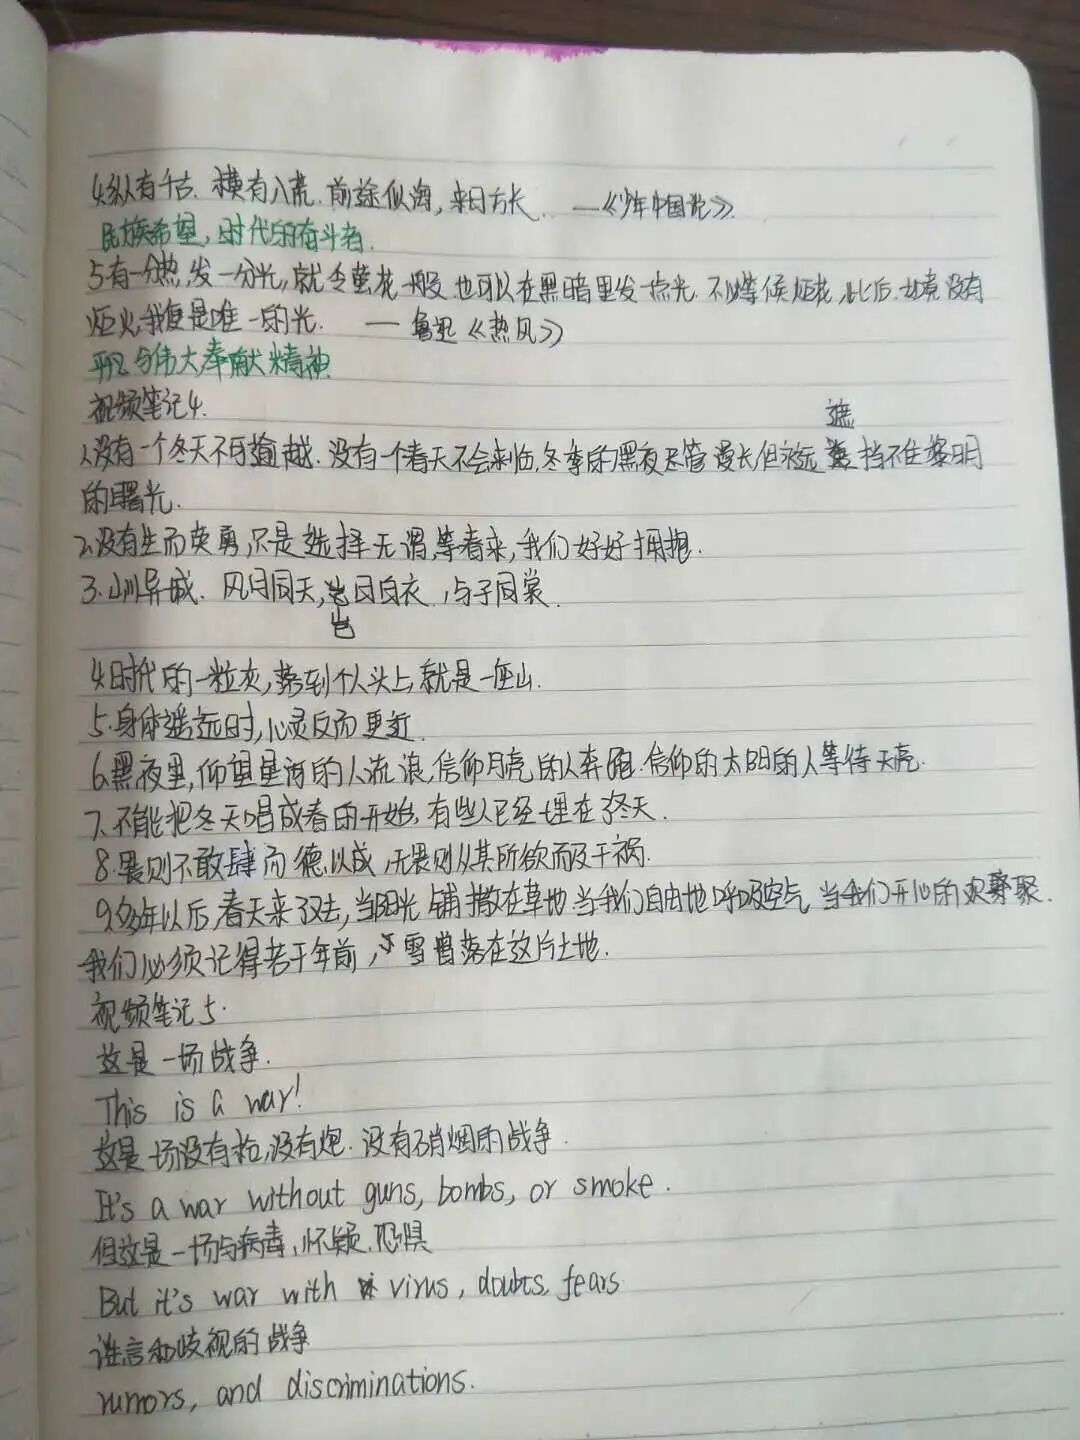 4.纵有千古、横有八荒.前途似海,来日方长. ——《少年中国说》
民族希望,时代的奋斗者.
5.有一分热,发一分光,就令萤花一般也可以在黑暗里发一点光.不必等候炬花,此后如竟没有
炬火,我便是唯一的光. —— 鲁迅《热风》
平凡与伟大奉献精神
视频笔记4.
遮
1.没有一个冬天不可逾越.没有一个春天不会来临.冬季的黑夜尽管漫长但永远 挡不住黎明
的曙光.
2.没有生而英勇,只是选择无谓,等春来,我们好好拥抱.
3.山川异域、风月同天,岂曰白衣,与子同裳.
岂
4.时代的一粒灰,落到个人头上,就是一座山.
5.身体遥远时,心灵反而更近.
6.黑夜里,仰望星河的人流浪,信仰月亮的人奔跑.信仰的太阳的人等待天亮.
7.不能把冬天唱成春的开始,有些人已经埋在了冬天.
8.畏则不敢肆而德以成,无畏则从其所欲而及于祸.
9.多年以后,春天来了又去,当阳光铺撒在草地.当我们自由地呼吸空气 当我们开心的欢聚.
我们必须记得若干年前,雪曾落在这片土地.
视频笔记5.
这是一场战争.
This is a war!
这是一场没有枪,没有炮.没有硝烟的战争.
It's a war without guns, bombs, or smoke.
但这是一场与病毒,怀疑,恐惧
But it's war with virus, doubts, fears
谣言和歧视的战争
rumors, and discriminations.